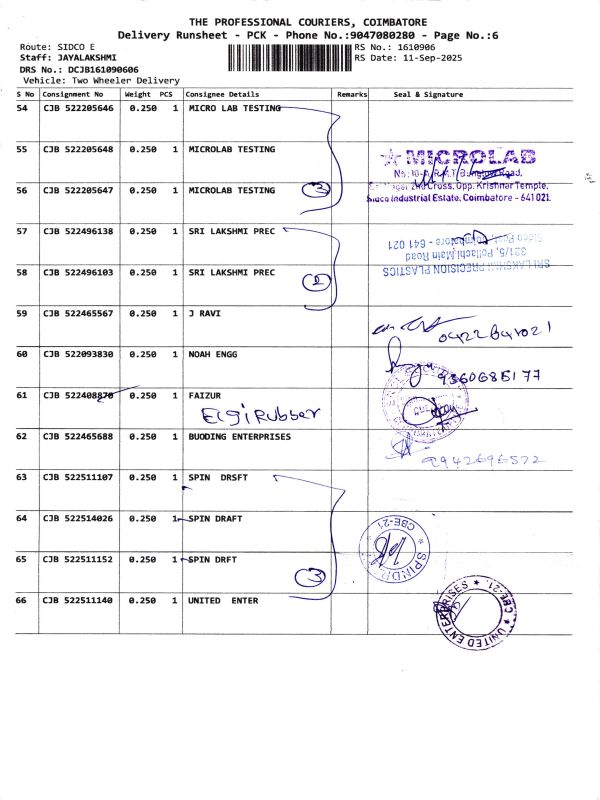 THE PROFESSIONAL COURIERS, COIMBATORE
Delivery Runsheet - PCK - Phone No.:9047080280 - Page No.:6
Route: SIDCO E
RS No.: 1610906
Staff: JAYALAKSHMI
RS Date: 11-Sep-2025
DRS No.: DCJB161090606
Vehicle: Two Wheeler Delivery
S No Consignment No Weight PCS Consignee Details Remarks Seal & Signature
54 CJB 522205646 0.250 1 MICRO LAB TESTING
55 CJB 522205648 0.250 1 MICROLAB TESTING
MICROLAB
56 CJB 522205647 0.250 1 MICROLAB TESTING
3
Cross, Opp. Krishnar Temple,
Sidco Industrial Estate, Coimbatore - 641 021.
57 CJB 522496138 0.250 1 SRI LAKSHMI PREC
58 CJB 522496103 0.250 1 SRI LAKSHMI PREC
2
SRI LAKSHMI PRECISION PLASTICS
321/5, Pollachi Main Road
Sidco Post, Coimbatore - 641 021
59 CJB 522465567 0.250 1 J RAVI
60 CJB 522093830 0.250 1 NOAH ENGG
9360685177
61 CJB 522408870 0.250 1 FAIZUR
Elgi Rubber
62 CJB 522465688 0.250 1 BUODING ENTERPRISES
9942696572
63 CJB 522511107 0.250 1 SPIN DRSFT
64 CJB 522514026 0.250 1 SPIN DRAFT
CBE-21
65 CJB 522511152 0.250 1 SPIN DRFT
3
66 CJB 522511140 0.250 1 UNITED ENTER
UNITED ENTERPRISES ★ CBE-21. ★